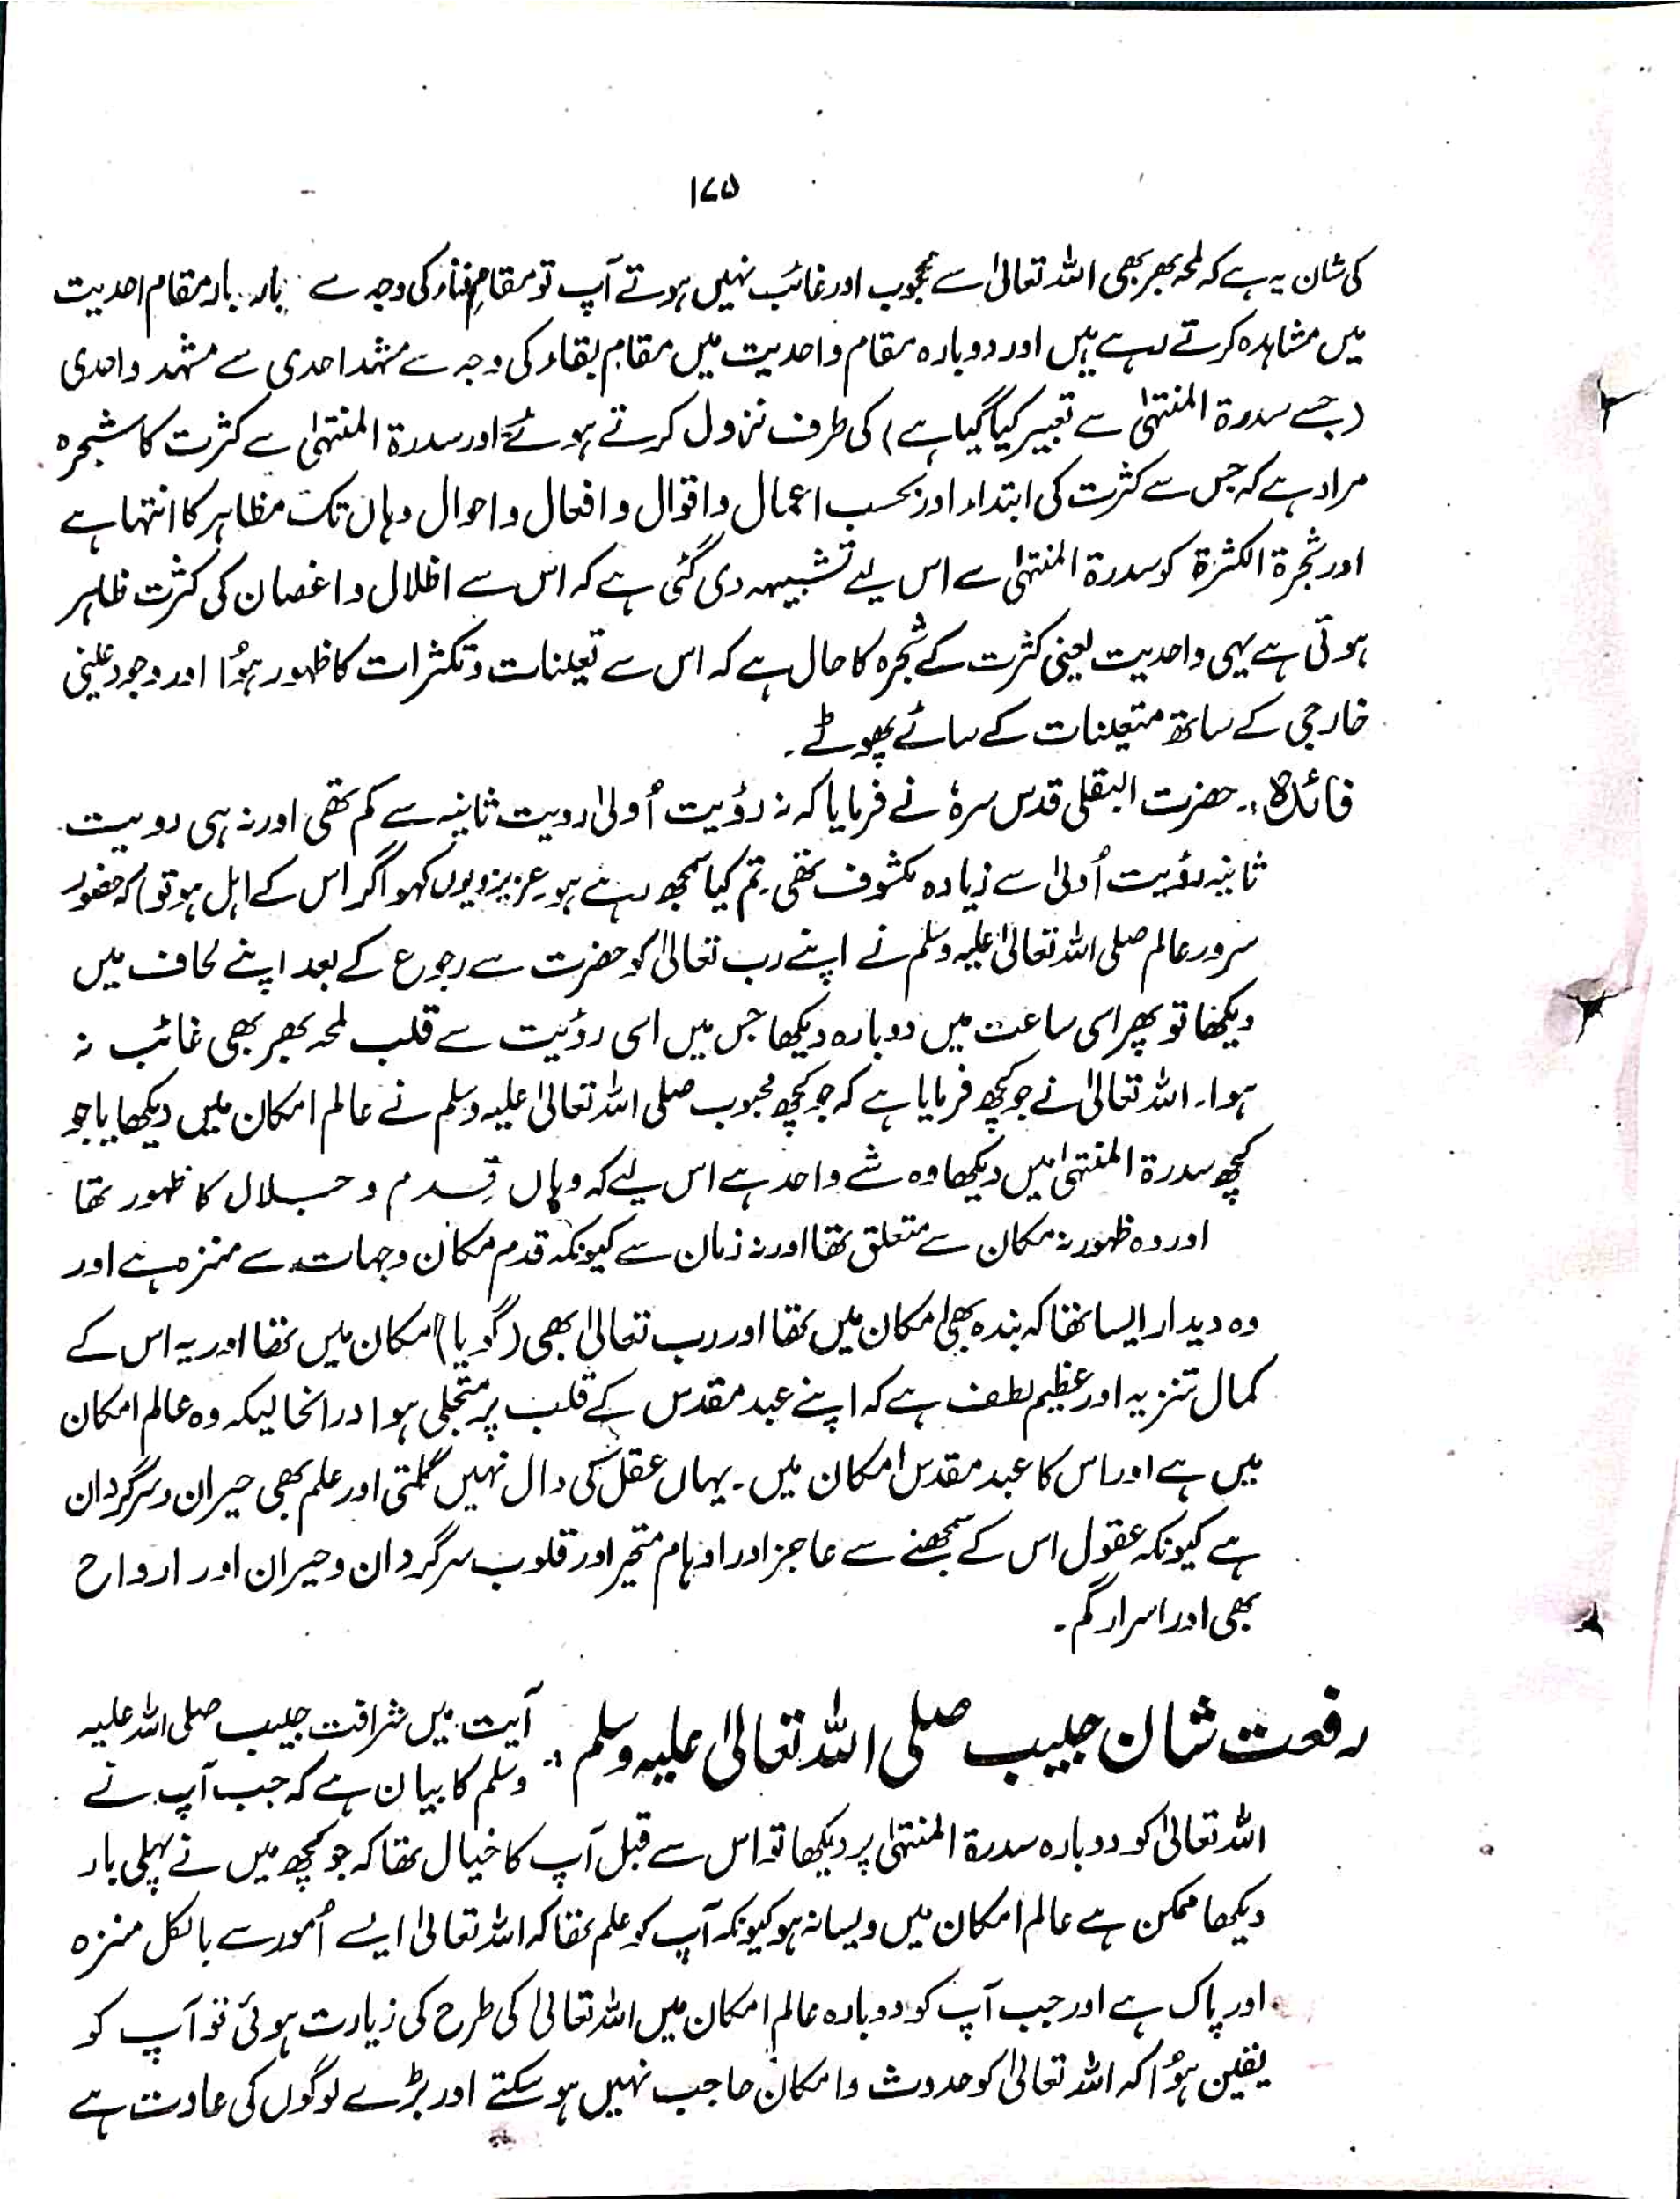 ۱۷۵
کی شان یہ ہے کہ لمحہ بھر بھی اللہ تعالیٰ سے محجوب اور غائب نہیں ہوتے آپ تو مقامِ فناء کی وجہ سے بار بار مقام احدیت
میں مشاہدہ کرتے رہے ہیں اور دوبارہ مقام واحدیت میں مقام بقاء کی وجہ سے مشہد احدی سے مشہد واحدی
(جسے سدرۃ المنتہیٰ سے تعبیر کیا گیا ہے) کی طرف نزول کرتے ہوئے اور سدرۃ المنتہیٰ سے کثرت کا شجرہ
مراد ہے کہ جس سے کثرت کی ابتداء اور بحسب اعمال و اقوال و افعال و احوال وہاں تک مظاہر کا انتہا ہے
اور شجرۃ الکثرۃ کو سدرۃ المنتہیٰ سے اس لیے تشبیہہ دی گئی ہے کہ اس سے اظلال و اغصان کی کثرت ظاہر
ہوتی ہے یہی واحدیت یعنی کثرت کے شجرہ کا حال ہے کہ اس سے تعینات و تکثرات کا ظہور ہؤا اور وجود عینی
خارجی کے ساتھ متعینات کے سائے پھوٹے۔
فائدہ :۔ حضرت البقلی قدس سرہٗ نے فرمایا کہ نہ رؤیت اُولیٰ رویت ثانیہ سے کم تھی اور نہ ہی رویت
ثانیہ رؤیت اُولیٰ سے زیادہ مکشوف تھی۔ تم کیا سمجھ رہے ہو عزیزو یوں کہو اگر اس کے اہل ہو تو) کہ حضور
سرور عالم صلی اللہ تعالیٰ علیہ وسلم نے اپنے رب تعالیٰ کو حضرت سے رجوع کے بعد اپنے لحاف میں
دیکھا تو پھر اسی ساعت میں دوبارہ دیکھا جس میں اسی رؤیت سے قلب لمحہ بھر بھی غائب نہ
ہوا۔ اللہ تعالیٰ نے جو کچھ فرمایا ہے کہ جو کچھ محبوب صلی اللہ تعالیٰ علیہ وسلم نے عالم امکان میں دیکھا یا جو
کچھ سدرۃ المنتہیٰ میں دیکھا وہ شے واحد ہے اس لیے کہ وہاں قِدم و جلال کا ظہور تھا
اور وہ ظہور نہ مکان سے متعلق تھا اور نہ زمان سے کیونکہ قدم مکان و جہات سے منزہ ہے اور
وہ دیدار ایسا تھا کہ بندہ بھی امکان میں تھا اور رب تعالیٰ بھی (گویا) امکان میں تھا اور یہ اس کے
کمال تنزیہ اور عظیم لطف ہے کہ اپنے عبد مقدس کے قلب پر متجلی ہوا درانحالیکہ وہ عالم امکان
میں ہے اور اس کا عبد مقدس امکان میں۔ یہاں عقل کی دال نہیں گلتی اور علم بھی حیران و سرگردان
ہے کیونکہ عقول اس کے سمجھنے سے عاجز اور اوہام متحیر اور قلوب سرگردان و حیران اور ارواح
بھی اور اسرار گم۔
رفعت شان حبیب صلی اللہ تعالیٰ علیہ وسلم :۔ آیت میں شرافت حبیب صلی اللہ علیہ
وسلم کا بیان ہے کہ جب آپ نے
اللہ تعالیٰ کو دوبارہ سدرۃ المنتہیٰ پر دیکھا تو اس سے قبل آپ کا خیال تھا کہ جو کچھ میں نے پہلی بار
دیکھا ممکن ہے عالم امکان میں ویسا نہ ہو کیونکہ آپ کو علم تھا کہ اللہ تعالیٰ ایسے اُمور سے بالکل منزہ
اور پاک ہے اور جب آپ کو دوبارہ عالم امکان میں اللہ تعالیٰ کی طرح کی زیارت ہوئی تو آپ کو
یقین ہؤا کہ اللہ تعالیٰ کو حدوث و امکان حاجب نہیں ہو سکتے اور بڑے لوگوں کی عادت ہے